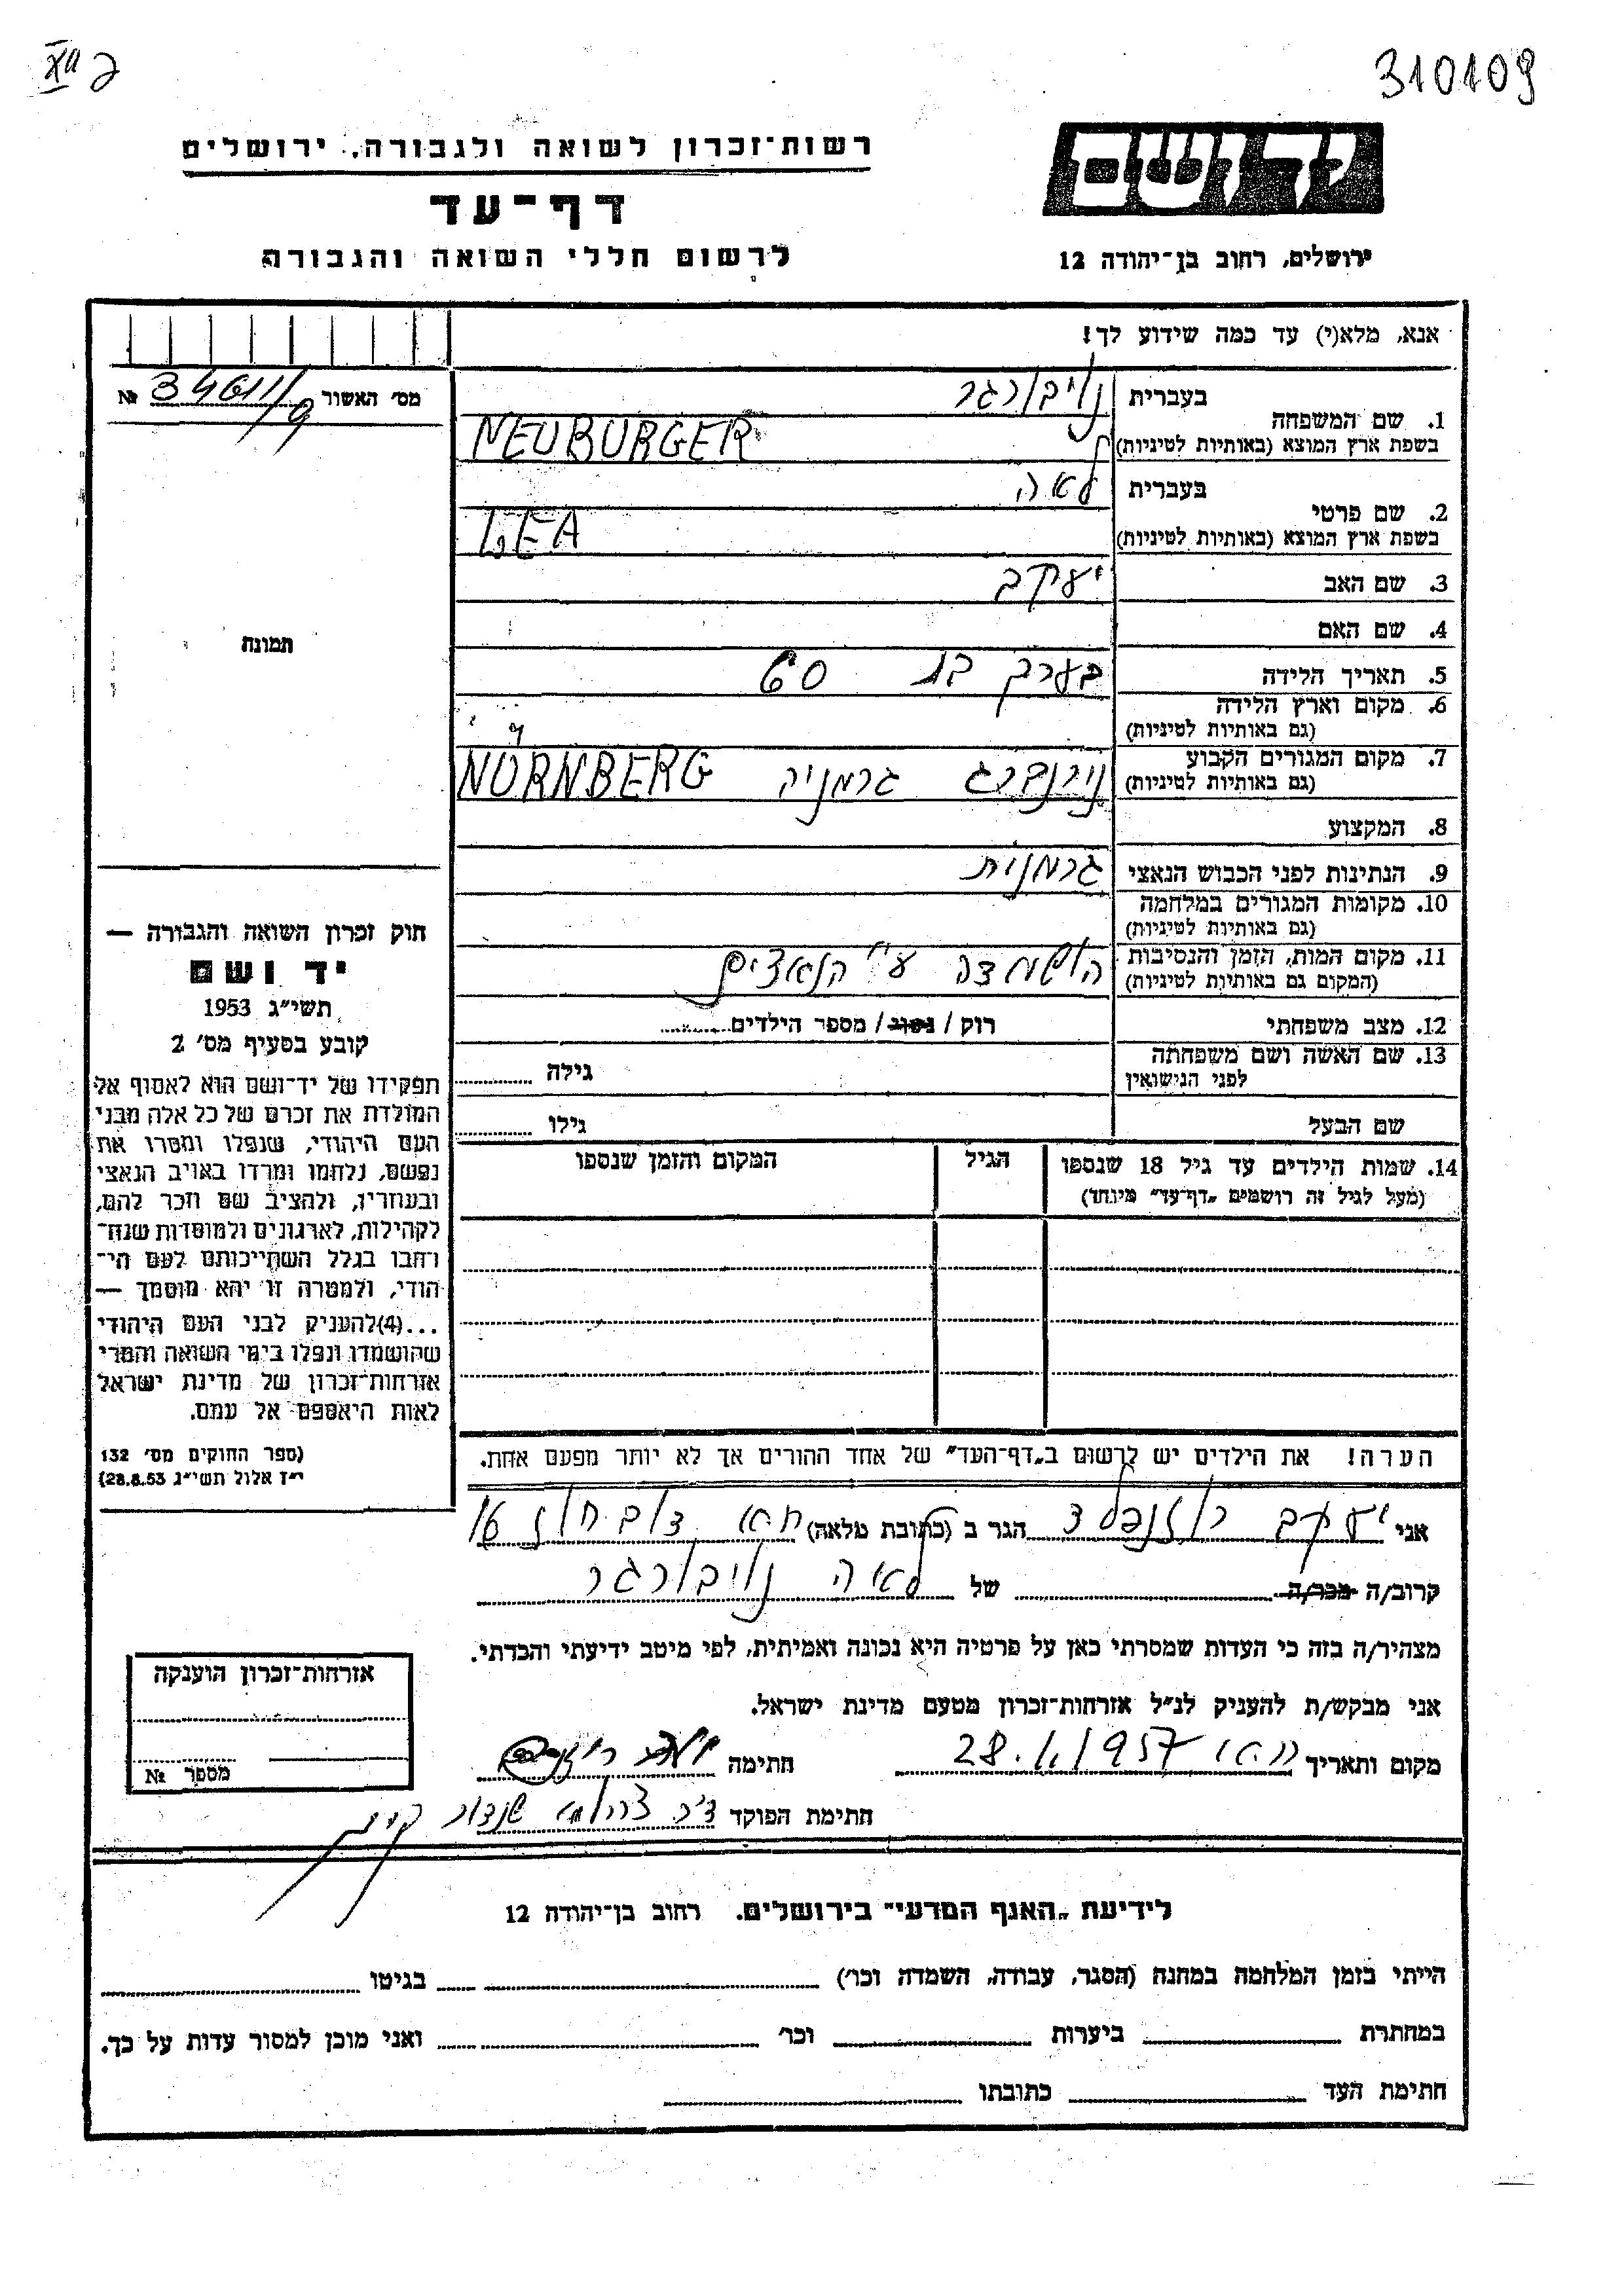 310109
רשות־זכרון לשואה ולגבורה, ירושלים
דף־עד
לרשום חללי השואה והגבורה
יד ושם
ירושלים, רחוב בן־יהודה 12
אנא, מלא(י) עד כמה שידוע לך!
מס' האשור № 34611/9
תמונה
1. שם המשפחה בעברית נויבורגר
בשפת ארץ המוצא (באותיות לטיניות) NEUBURGER
2. שם פרטי בעברית לאה
בשפת ארץ המוצא (באותיות לטיניות) LEA
3. שם האב יעקב
4. שם האם
5. תאריך הלידה בערך בת 60
6. מקום וארץ הלידה
(גם באותיות לטיניות)
7. מקום המגורים הקבוע נירנברג גרמניה NÜRNBERG
(גם באותיות לטיניות)
8. המקצוע
9. הנתינות לפני הכבוש הנאצי גרמנית
10. מקומות המגורים במלחמה
(גם באותיות לטיניות)
11. מקום המות, הזמן והנסיבות הושמדה ע"י הנאצים
(המקום גם באותיות לטיניות)
12. מצב משפחתי רוק / נשוי / מספר הילדים
13. שם האשה ושם משפחתה
לפני הנישואין גילה
שם הבעל גילו
14. שמות הילדים עד גיל 18 שנספו הגיל המקום והזמן שנספו
(מעל לגיל זה רושמים „דף־עד" מיוחד)
הערה! את הילדים יש לרשום ב„דף־העד" של אחד ההורים אך לא יותר מפעם אחת.
חוק זכרון השואה והגבורה —
יד ושם
תשי״ג 1953
קובע בסעיף מס' 2
תפקידו של יד־ושם הוא לאסוף אל
המולדת את זכרם של כל אלה מבני
העם היהודי, שנפלו ומסרו את
נפשם, נלחמו ומרדו באויב הנאצי
ובעוזריו, ולהציב שם וזכר להם,
לקהילות, לארגונים ולמוסדות שנח־
רבו בגלל השתייכותם לעם הי־
הודי, ולמטרה זו יהא מוסמך —
...(4) להעניק לבני העם היהודי
שהושמדו ונפלו בימי השואה והמרי
אזרחות־זכרון של מדינת ישראל
לאות היאספם אל עמם.
(ספר החוקים מס' 132
י״ז אלול תשי״ג 28.8.53)
אני יעקב רוזנפלד הגר ב (כתובת מלאה)
קרוב/ה מכר/ה של לאה נויבורגר
מצהיר/ה בזה כי העדות שמסרתי כאן על פרטיה היא נכונה ואמיתית, לפי מיטב ידיעתי והכרתי.
אני מבקש/ת להעניק לנ״ל אזרחות־זכרון מטעם מדינת ישראל.
מקום ותאריך 28.1.1957 חתימה
חתימת הפוקד
אזרחות־זכרון הוענקה
מספר №
לידיעת „האגף המדעי" בירושלים. רחוב בן־יהודה 12
הייתי בזמן המלחמה במחנה (הסגר, עבודה, השמדה וכו') בגיטו
במחתרת ביערות וכו' ואני מוכן למסור עדות על כך.
חתימת העד כתובתו